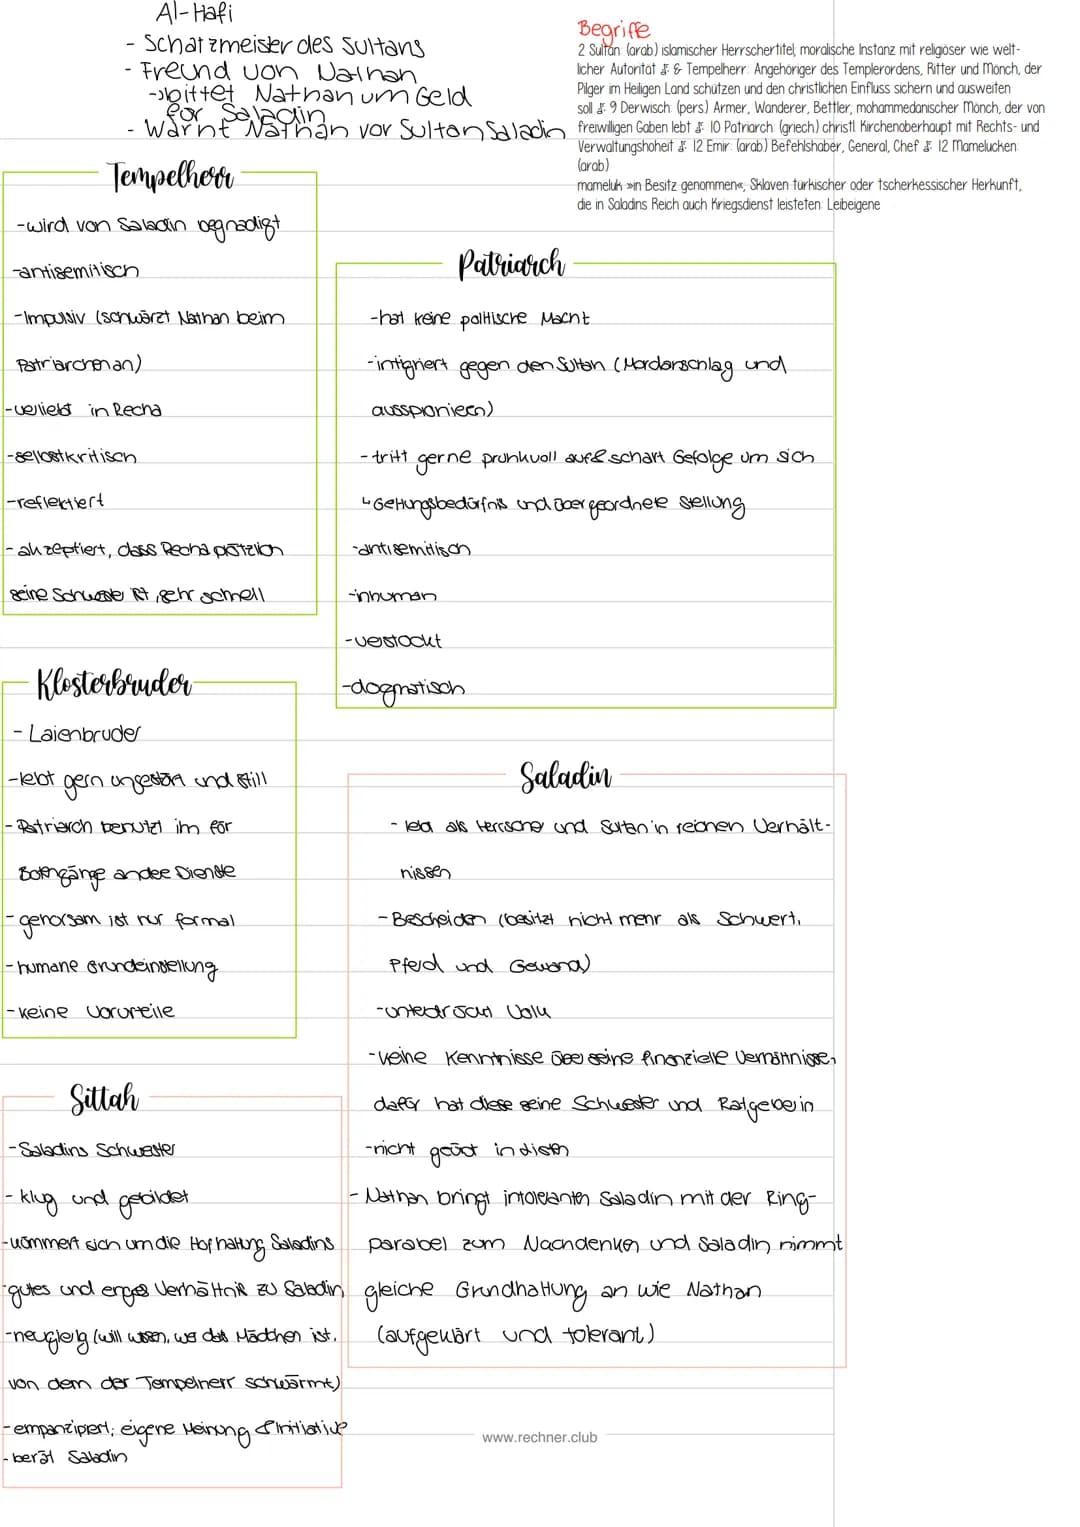 Al-Hafi
- Schatzmeister des Sultans
- Freund von Nathan
->bittet Nathan um Geld
for Saladin
- Warnt Nathan vor Sultan Saladin
Begriffe
2 Sultan: (arab) islamischer Herrschertitel, moralische Instanz mit religiöser wie welt-
licher Autorität & 6 Tempelherr: Angehöriger des Templerordens, Ritter und Mönch, der
Pilger im Heiligen Land schützen und den christlichen Einfluss sichern und ausweiten
soll & 9 Derwisch: (pers) Armer, Wanderer, Bettler, mohammedanischer Mönch, der von
freiwilligen Gaben lebt & 10 Patriarch: (griech) christl. Kirchenoberhaupt mit Rechts- und
Verwaltungshoheit & 12 Emir: (arab) Befehlshaber, General, Chef & 12 Mameluchen:
(arab)
mameluk »in Besitz genommen«, Sklaven türkischer oder tscherkessischer Herkunft,
die in Saladins Reich auch Kriegsdienst leisteten: Leibeigene
Tempelherr
-wird von Saladin begnadigt
-antisemitisch
-Impulsiv (schwärzt Nathan beim
Patriarchen an)
-verliebt in Recha
-selbstkritisch
-reflektiert
-akzeptiert, dass Recha plötzlich
seine Schwester ist, sehr schnell
Patriarch
-hat keine politische Macht
-intigriert gegen den Sultan (Mordanschlag und
ausspionieren)
-tritt gerne prunkvoll auf & schart Gefolge um sich
↳Geltungsbedürfnis und übergeordnete Stellung
-antisemitisch
-inhuman
-verstockt
-dogmatisch
Klosterbruder
- Laienbruder
-lebt gern ungestört und still
-Patriarch benutzt ihn für
Botengänge andee Dienste
-gehorsam ist nur formal
-humane Grundeinstellung
-keine Vorurteile
Saladin
- lebt als Herrscher und Sultan in reichen Verhält-
nissen
-Bescheiden (besitzt nicht mehr als Schwert,
Pferd und Gewand)
-unterdrückt Volk
-keine Kenntnisse über seine finanzielle Verhältnisse,
dafür hat diese seine Schwester und Ratgeberin
-nicht geübt in Listen
- Nathan bringt intoleranten Saladin mit der Ring-
parabel zum Nachdenken und Saladin nimmt
gleiche Grundhaltung an wie Nathan
(aufgeklärt und tolerant)
Sittah
-Saladins Schwester
- klug und gebildet
-kümmert sich um die Hofhaltung Saladins
-gutes und enges Verhältnis zu Saladin
-neugierig (will wissen, wer das Mädchen ist,
von dem der Tempelherr schwärmt)
-emanzipiert; eigene Meinung & Initiative
- berät Saladin
www.rechner.club